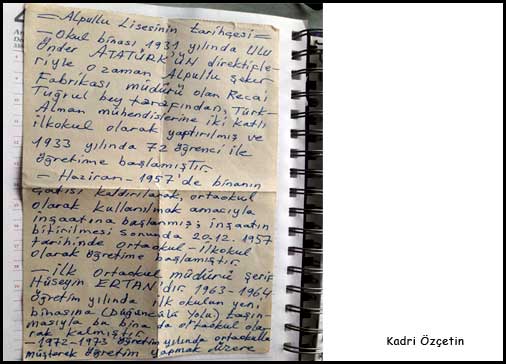 = Alpullu Lisesinin tarihçesi =
— Okul binası 1931 yılında Ulu
Önder ATATÜRK'ÜN direktifle-
riyle o zaman Alpullu Şeker
Fabrikası müdürü olan Recai
Tuğrul bey tarafından, Türk-
Alman mühendislerine iki katlı
ilkokul olarak yaptırılmış ve
1933 yılında 72 öğrenci ile
öğretime başlamıştır.
— Haziran - 1957'de binanın
çatısı kaldırılarak, ortaokul
olarak kullanılmak amacıyla
inşaatına başlanmış; inşaatın
bitirilmesi sonunda 20.12.1957
tarihinde ortaokul - ilkokul
olarak öğretime başlamıştır.
— ilk ortaokul müdürü Şerif
Hüseyin ERTAN'dır. 1963-1964
öğretim yılında ilk okulun yeni
binasına (Düğüncülü Yolu) taşın-
masıyla bu bina da ortaokul ola-
rak kalmıştır.
— 1972-1973 öğretim yılında ortaokulla
müşterek öğretim yapmak üzere
Kadri Özçetin